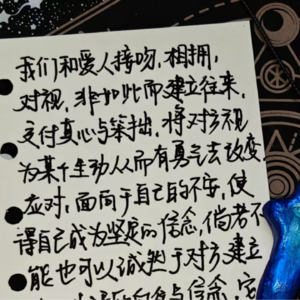 我们和爱人接吻，相拥，
对视，非如此而建立往来，
交付真心与笨拙，将对方视
为某个生动从而有勇气去改变
应对，面向于自己的不安，使
得自己成为坚定的信念，倘若不
能也可以诚然于对方建立
与信念，